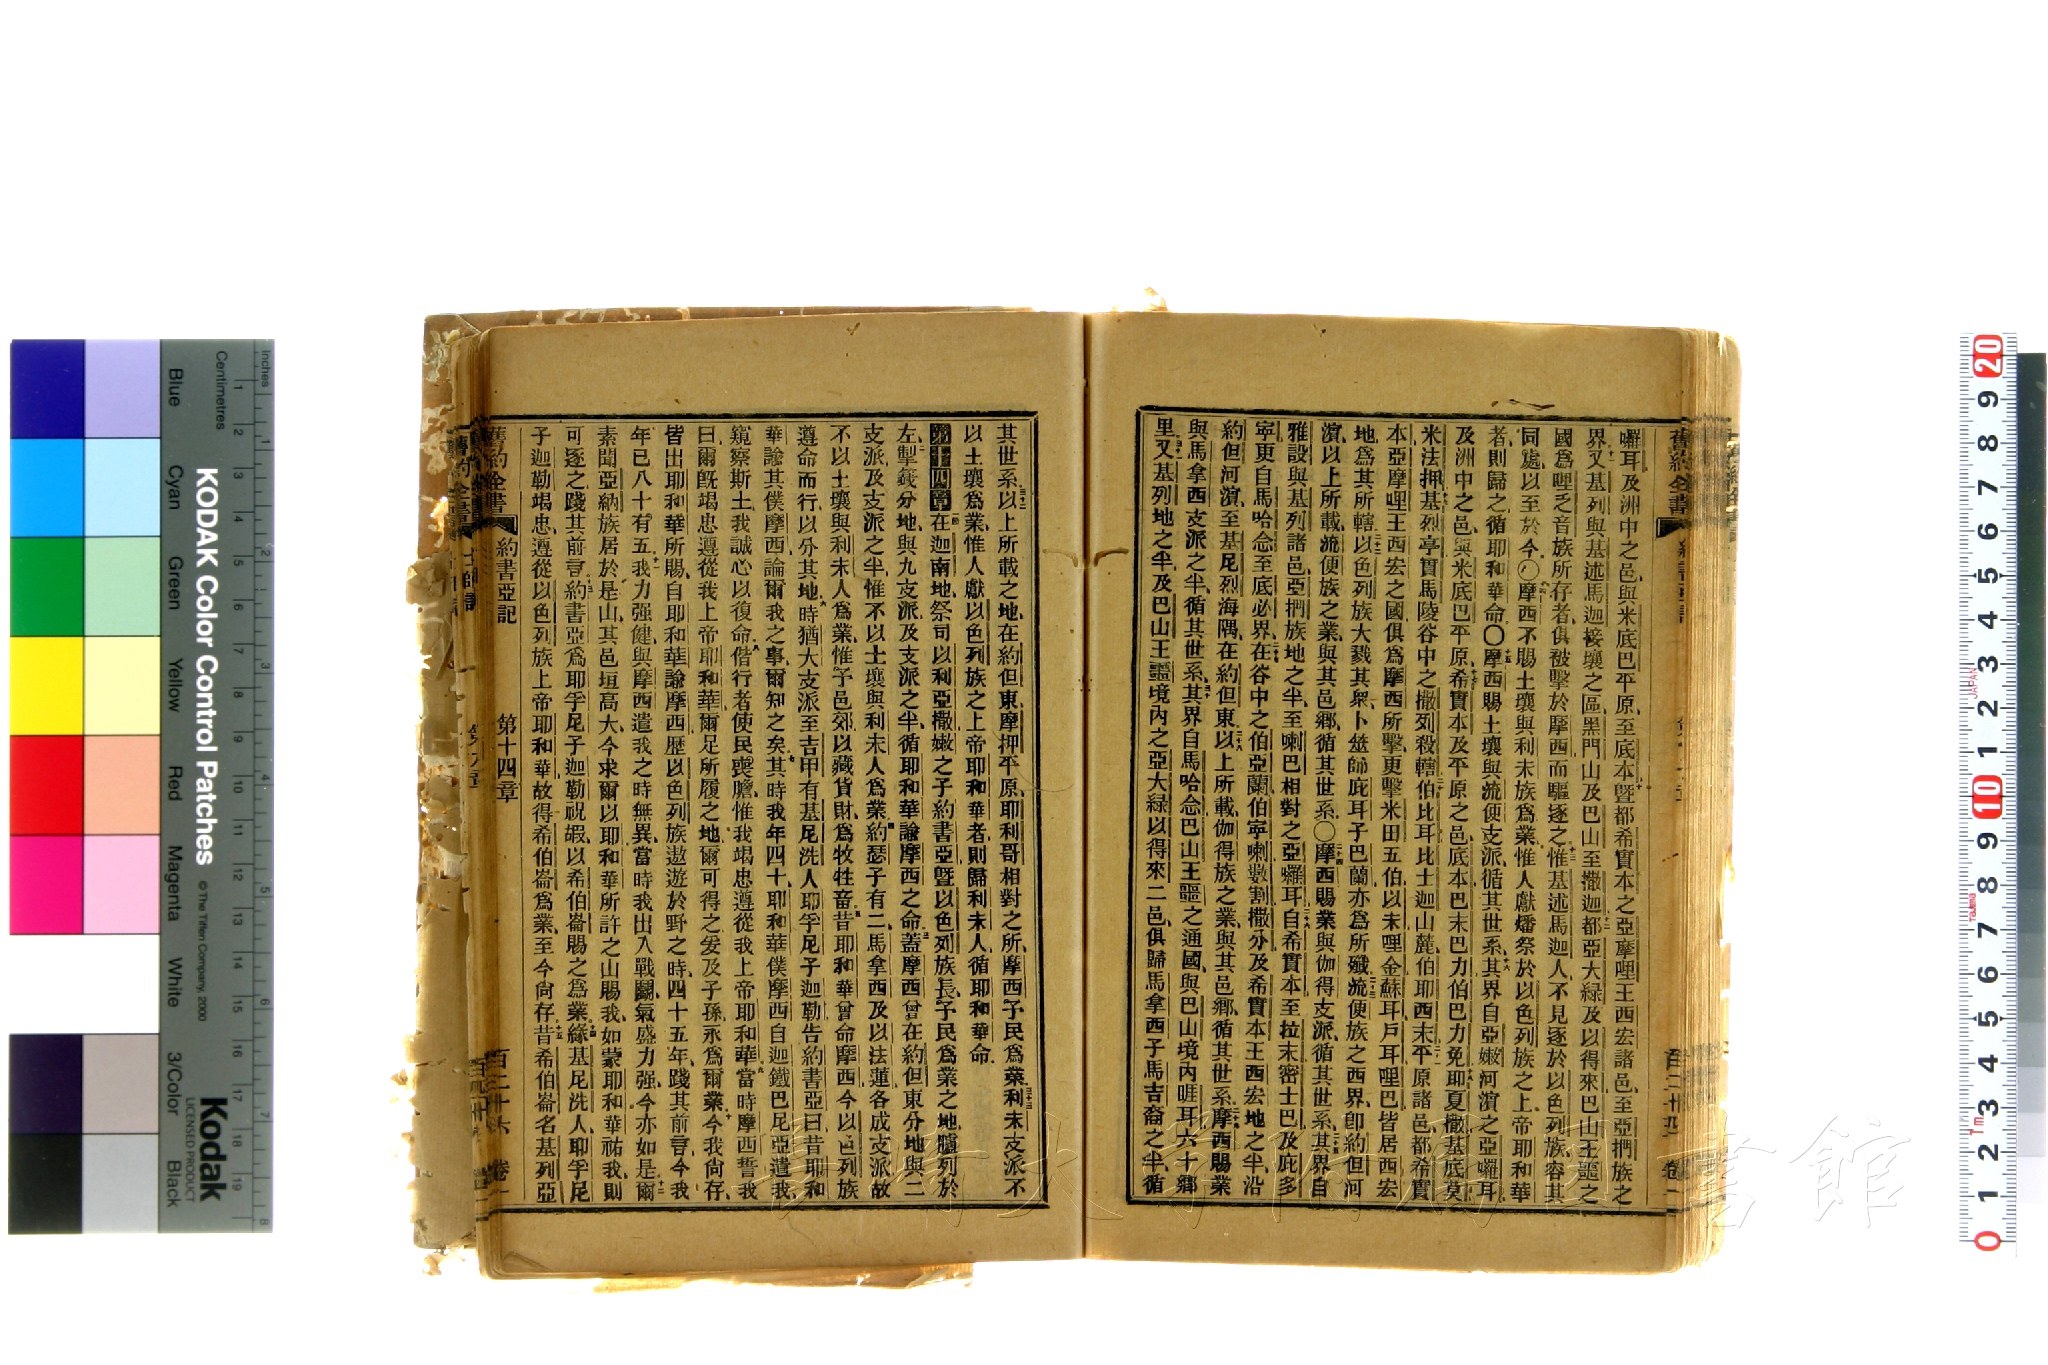 囉耳及洲中之邑與米底巴平原至底本曁都希實本之亞摩哩王西宏諸邑至亞捫族之
界又基列與基述馬迦接壤之區黑門山及巴山至撒迦都亞大綠及以得來巴山王噩之
國爲哩乏音族所存者俱被擊於摩西而驅逐之惟基述馬迦人不見逐於以色列族容其
同處以至於今〇摩西不賜土壤與利未族爲業惟人獻燔祭於以色列族之上帝耶和華
者則歸之循耶和華命〇摩西賜土壤與流便支派循其世系其界自亞嫩河濵之亞囉耳
及洲中之邑與米底巴平原希實本及平原之邑底本巴末巴力伯巴力免耶夏撒基底莫
米法押基烈亭西馬陵谷中之撒列殺轄伯比耳比士迦山麓伯耶西末平原諸邑都希實
本亞摩哩王西宏之國俱爲摩西所擊更擊米田五伯以未哩金蘇耳戸耳哩巴皆居西宏
地爲其所轄以色列族大戮其衆卜筮師庇耳子巴蘭亦爲所殲流便族之西界卽約但河
濵以上所載流便族之業與其邑鄕循其世系〇摩西賜業與伽得支派循其世系其界自
雅設與基列諸邑亞捫族地之半至喇巴相對之亞囉耳自希實本至拉末密士巴及庇多
寗更自馬哈念至底必界在谷中之伯亞蘭伯寗喇數割撒分及希實本王西宏地之半沿
約但河濵至基尼烈海隅在約但東以上所載伽得族之業與其邑鄕循其世系摩西賜業
與馬拿西支派之半循其世系其界自馬哈念巴山王噩之通國與巴山境內睚耳六十鄕
里又基列地之半及巴山王噩境內之亞大綠以得來二邑俱歸馬拿西子馬吉裔之半循
其世系以上所載之地在約但東摩押平原耶利哥相對之所摩西予民爲業利未支派不
以土壤爲業惟人獻以色列族之上帝耶和華者則歸利未人循耶和華命
第十四章 在迦南地祭司以利亞撒嫩之子約書亞曁以色列族長予民爲業之地臚列於
左掣籤分地與九支派及支派之半循耶和華諭摩西之命蓋摩西曾在約但東分地與二
支派及支派之半惟不以土壤與利未人爲業約瑟子有二馬拿西及以法蓮各成支派故
不以土壤與利未人爲業惟予邑郊以藏貨財爲牧牲畜昔耶和華曾命摩西今以色列族
遵命而行以分其地時猶大支派至吉甲有基尼洗人耶孚尼子迦勒告約書亞曰昔耶和
華諭其僕摩西論爾我之事爾知之矣其時我年四十耶和華僕摩西自迦鐵巴尼亞遣我
窺察斯土我誠心以復命偕行者使民喪膽惟我竭忠遵從我上帝耶和華當時摩西誓我
曰爾旣竭忠遵從我上帝耶和華爾足所履之地爾可得之爰及子孫永爲爾業今我尙存
皆出耶和華所賜自耶和華諭摩西歷以色列族遨遊於野之時四十五年踐其前言今我
年已八十有五我力强健與摩西遣我之時無異當時我出入戰鬭氣盛力强今亦如是爾
素聞亞納族居於是山其邑垣高大今求爾以耶和華所許之山賜我如蒙耶和華祐我則
可逐之踐其前言約書亞爲耶孚尼子迦勒祝嘏以希伯崙賜之爲業緣基尼洗人耶孚尼
子迦勒竭忠遵從以色列族上帝耶和華故得希伯崙爲業至今尙存昔希伯崙名基列亞
舊約全書 約書亞記 第十四章 百二十六 卷一
KODAK Color Control Patches
© The Tiffen Company, 2000
Kodak
LICENSED PRODUCT
Inches
Centimetres
Blue
Cyan
Green
Yellow
Red
Magenta
White
3/Color
Black